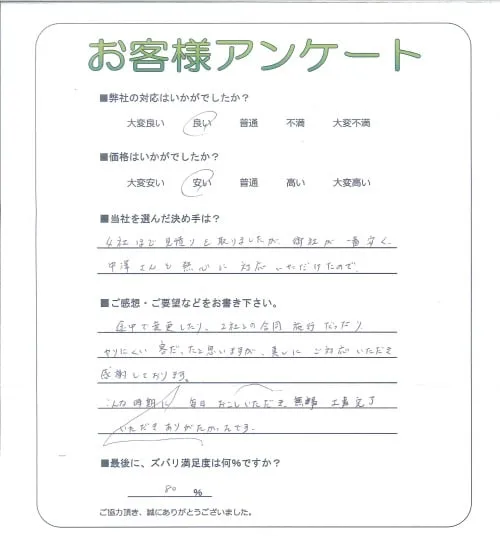 お客様アンケート
■弊社の対応はいかがでしたか？
大変良い 良い 普通 不満 大変不満
■価格はいかがでしたか？
大変安い 安い 普通 高い 大変高い
■当社を選んだ決め手は？
4社ほど見積りを取りましたが、御社が一番安く、
中澤さんも熱心に対応いただけたので。
■ご感想・ご要望などをお書き下さい。
途中で変更したり、2社との合同施行だったり
やりにくい客だったと思いますが、 ご対応いただき
感謝しております。
時期に 毎日おこしいただき、無事 工事完了
いただきありがたかったです。
■最後に、ズバリ満足度は何％ですか？
80 %
ご協力頂き、誠にありがとうございました。